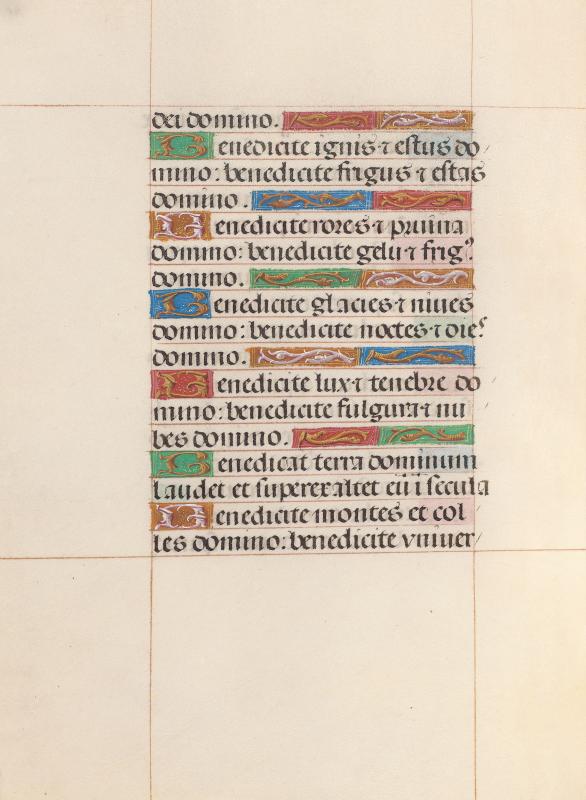 dei domino.
Benedicite ignis ⁊ estus do
mino: benedicite frigus ⁊ estas
domino.
Benedicite rores ⁊ pruina
domino: benedicite gelu ⁊ frigꝰ
domino.
Benedicite glacies ⁊ niues
domino: benedicite noctes ⁊ dies
domino.
Benedicite lux ⁊ tenebre do
mino: benedicite fulgura ⁊ nu
bes domino.
Benedicat terra dominum
laudet et superexaltet eū ī secula
Benedicite montes et col
les domino: benedicite vniuer